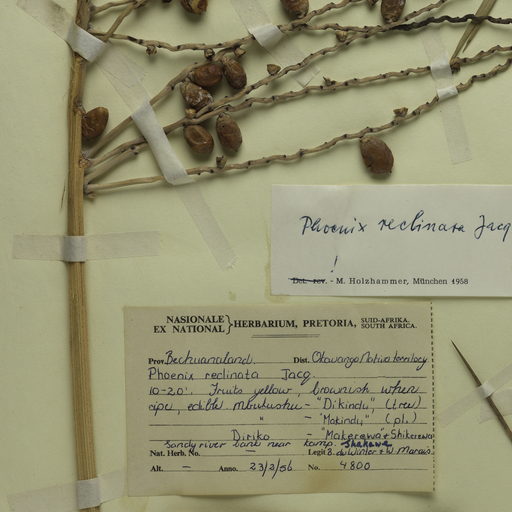 Phoenix reclinata Jacq
!
Det. rev. - M. Holzhammer, München 1958
NASIONALE
EX NATIONAL } HERBARIUM, PRETORIA, SUID-AFRIKA.
SOUTH AFRICA.
Prov. Bechuanaland. Dist. Okavango Native Territory
Phoenix reclinata Jacq.
10-20'. Fruits yellow, brownish when
ripe, edible. Mbukushu - "Dikindu", (tree)
" - "Makindu" (pl.)
Diriko - "Makerewa" & Shikerewa
Sandy river bank near kamp. Shakawe
Nat. Herb. No. — Legit B. de Winter & W. Marais
Alt. — Anno. 23/2/56 No. 4800